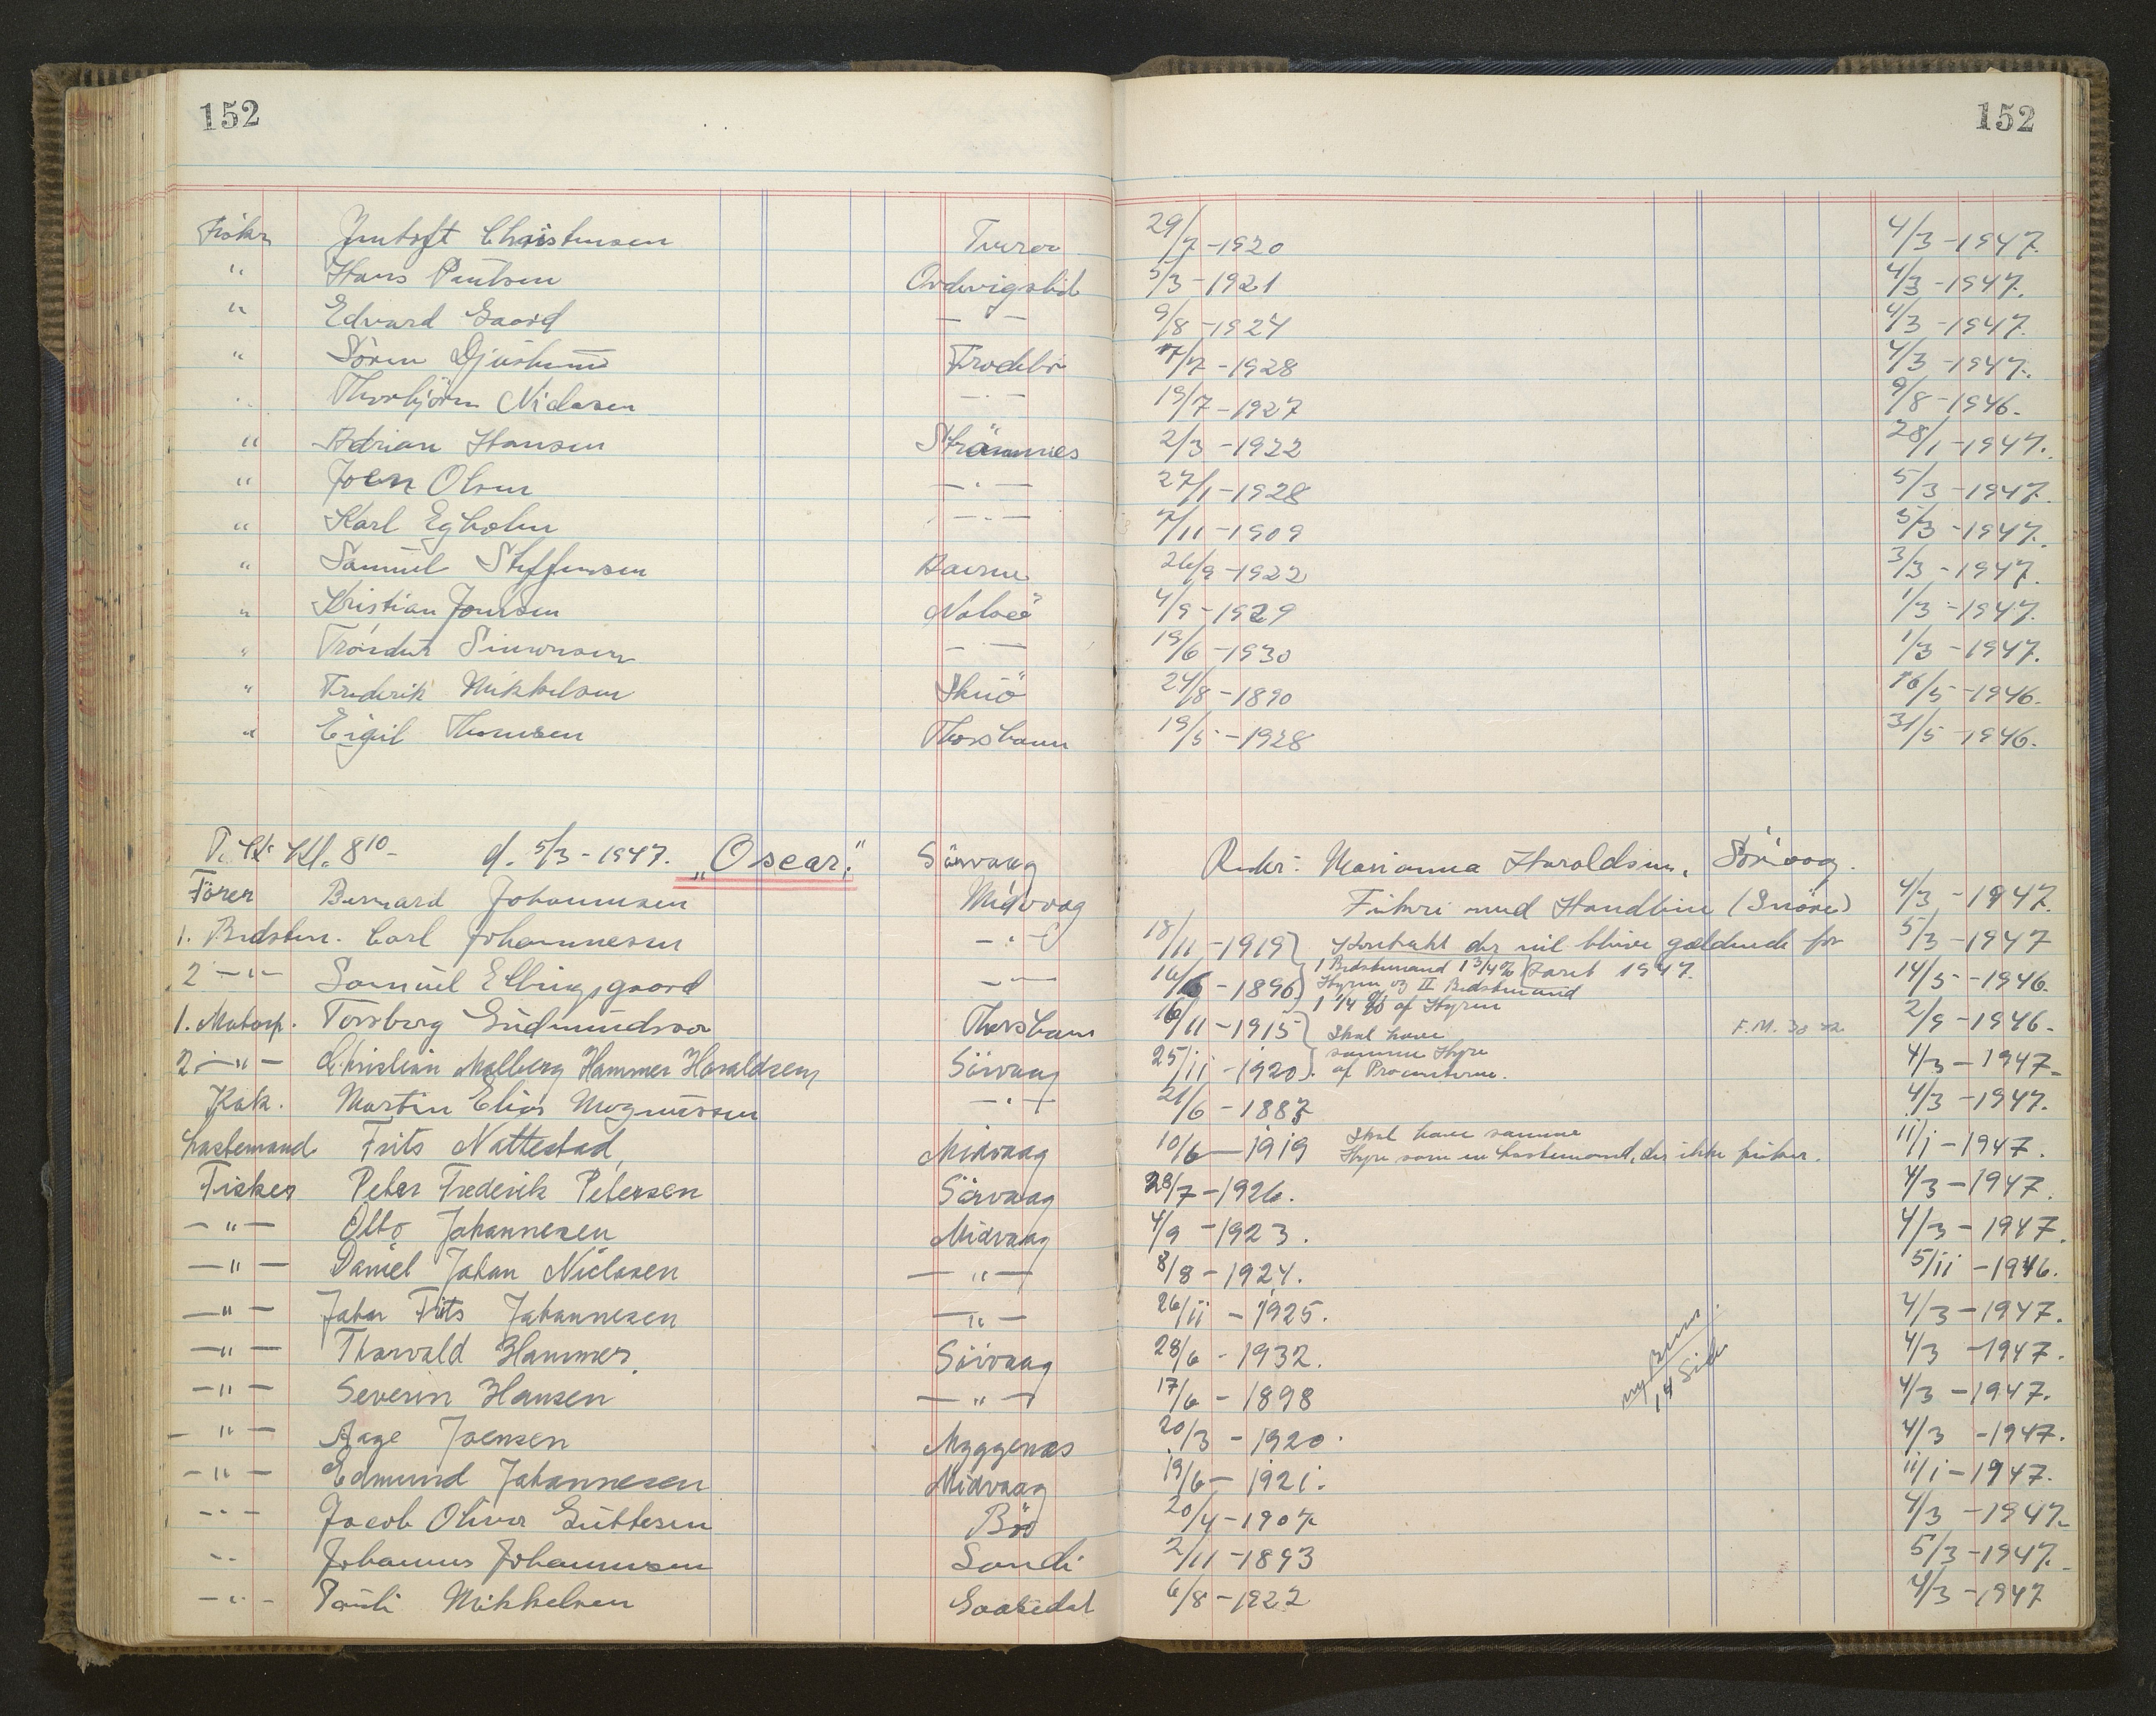 152 152
Fisker Jentoft Christensen Tverøe 29/7-1920 4/3-1947.
" Hans Poulsen Ordevigslid 5/3-1921 4/3-1947.
" Edvard Gaard — — 9/8-1924 4/3-1947.
" Sören Djurhuus Frodebö 7/7-1928 4/3-1947.
Thorbjörn Niclasen — " — 19/7-1927 9/8-1946.
" Adrian Hansen Strömnes 2/3-1922 28/1-1947.
" Joen Olsen — " — 27/1-1928 5/3-1947.
" Karl Egholm — " — 7/11-1909 5/3-1947.
" Samuel Steffensen 26/9-1922 3/3-1947.
" Kristian Joensen Nolsö 4/9-1929 1/3-1947.
" Tróndur Simonsen — — 19/6-1930 1/3-1947.
" Frederik Mikkelsen Skuö 24/8-1890 16/5-1946.
" Eigil Thomsen Thorshavn 19/5-1928 31/5-1946.
Kl. 8 10 - d. 5/3-1947. "Oscar." Sörvaag Reder: Marianna Haraldsen, Sörvaag.
Förer Bernard Johannesen Midvaag Fiskeri med Handline (Snöre) 4/3-1947.
1. Bedstm. Carl Johannesen — " — 18/11-1919 Kontrakt der vil blive gældende for 5/3-1947
2 — " — Samuel Ellingsgaard — " — 16/6-1896 1 Bedstemand 1 3/4 % Aaret 1947. 14/5-1946.
Hyren og II Bedstemand
1 1/4 % af Hyren
1. Motorp. Torberg Gudmundsson Thorshavn 16/11-1915 Skal have F.M. 30 2/9-1946.
2 — " — Christian Malberg Hammer Haraldsen Sörvaag 25/11-1920 samme Hyre 4/3-1947.
af Procenterne.
Kok. Martin Elias Magnussen — " — 21/6-1887 4/3-1947.
Lastemand Frits Nattestad, Midvaag 10/6-1919 Skal have samme 11/1-1947.
Hyre som en Lastemand, der ikke fisker.
Fisker Peter Frederik Petersen Sörvaag 28/7-1926. 4/3-1947.
— " — Otto Johannesen Midvaag 4/9-1923. 4/3-1947.
— " — Daniel Johan Niclasen — " — 8/8-1924. 5/11-1946.
— " — Johan Frits Johannesen — " — 26/11-1925. 4/3-1947.
— " — Thorvald Hammer Sörvaag 28/6-1932. 4/3-1947.
— " — Severin Hansen — " — 17/6-1898 4/3-1947.
— " — Aage Joensen Myggenæs 20/3-1920. 4/3-1947.
— " — Edmund Johannesen Midvaag 19/6-1921. 11/1-1947.
— " — Jacob Oliver Guttesen Bö 20/4-1907 4/3-1947.
— " — Johannes Johannesen Sandi 2/11-1893 5/3-1947.
— " — Pauli Mikkelsen Gaasedal 6/8-1922 4/3-1947